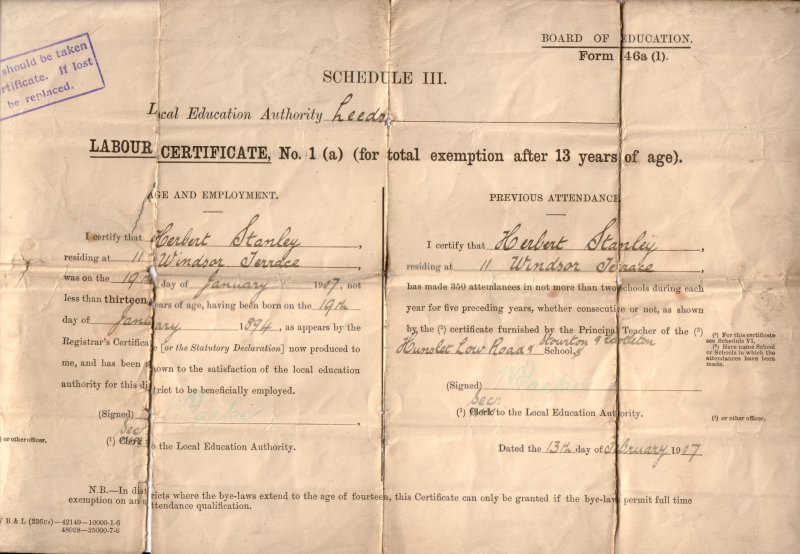 BOARD OF EDUCATION.
Form 46a (1).
should be taken
rtificate. If lost
be replaced.
SCHEDULE III.
Local Education Authority Leeds
LABOUR CERTIFICATE, No. 1 (a) (for total exemption after 13 years of age).
AGE AND EMPLOYMENT.
I certify that Herbert Stanley,
residing at 11 Windsor Terrace
was on the 19th day of January 1907, not
less than thirteen years of age, having been born on the 19th
day of January 1894, as appears by the
Registrar's Certificate [or the Statutory Declaration] now produced to
me, and has been shown to the satisfaction of the local education
authority for this district to be beneficially employed.
(Signed)
Sec
(¹) Clerk to the Local Education Authority.
) or other officer.
PREVIOUS ATTENDANCE
I certify that Herbert Stanley,
residing at 11 Windsor Terrace
has made 350 attendances in not more than two schools during each
year for five preceding years, whether consecutive or not, as shown
by the (²) certificate furnished by the Principal Teacher of the (³)
Hunslet Low Road & Schools
(Signed)
Sec
(¹) Clerk to the Local Education Authority.
Dated the 13th day of February 1907
(²) For this certificate
see Schedule VI.
(³) Here name School
or Schools in which the
attendances have been
made.
(¹) or other officer.
N.B.—In districts where the bye-laws extend to the age of fourteen, this Certificate can only be granted if the bye-laws permit full time
exemption on an attendance qualification.
B & L (236us)—42149—10000-1-6
48928—25000-7-6